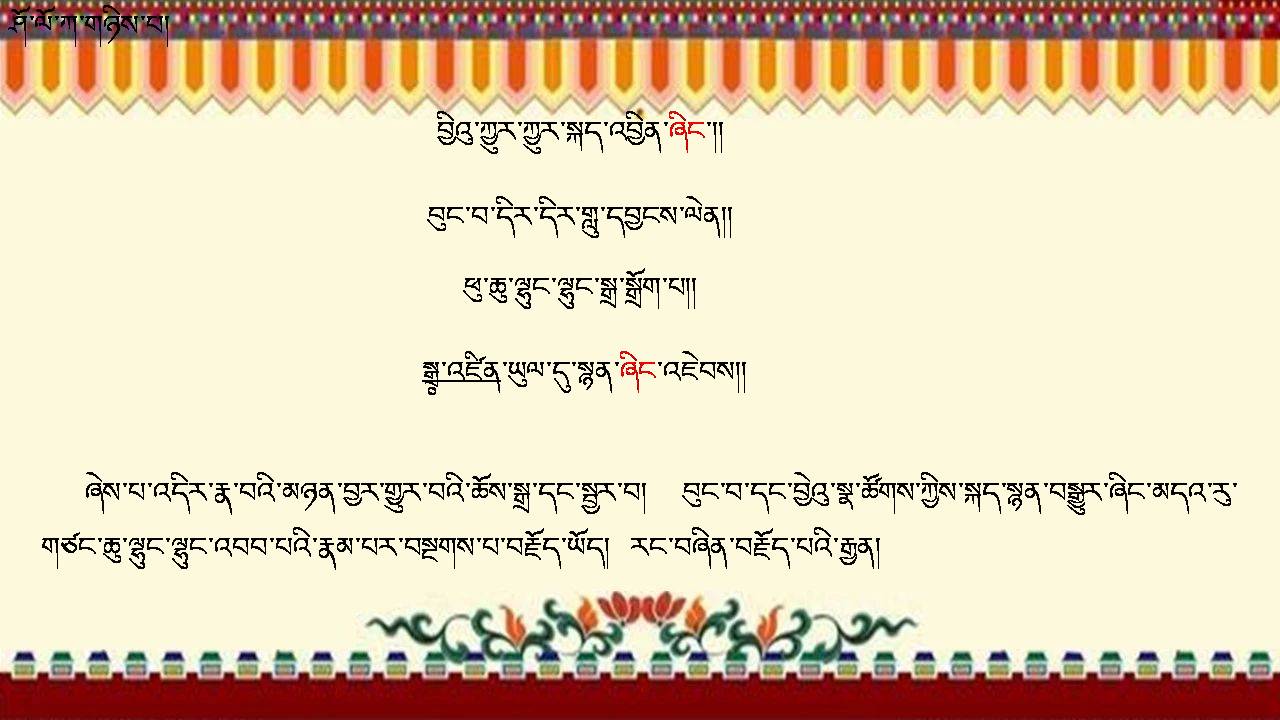 ཤོ་ལོ་ཀ་གཉིས་པ།
བྱིའུ་ཀྱུར་ཀྱུར་སྐད་འབྱིན་ཞིང་།།
བུང་བ་དིར་དིར་གླུ་དབྱངས་ལེན།།
ཕུ་ཆུ་ལྷུང་ལྷུང་སྒྲ་སྒྲོག་པ།།
སྒྲ་འཛིན་ཡུལ་དུ་སྙན་ཞིང་འཇེབས།།
ཞེས་པ་འདིར་རྣ་བའི་མཉན་བྱར་གྱུར་བའི་ཆོས་སྒྲ་དང་སྦྱར་བ། བུང་བ་དང་བྱེའུ་སྣ་ཚོགས་ཀྱིས་སྐད་སྙན་བསྒྱུར་ཞིང་མདའ་རུ་
གཙང་ཆུ་ལྷུང་ལྷུང་འབབ་པའི་རྣམ་པར་བསྔགས་པ་བརྗོད་ཡོད། རང་བཞིན་བརྗོད་པའི་རྒྱན།